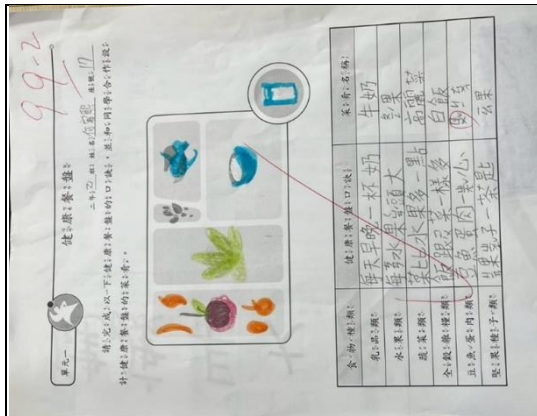 99-2
單元一
健康餐盤
二年 班 姓名 座號 17
請完成以下健康餐盤的口訣,並和同學合作設
計健康餐盤的菜肴。
食物種類 健康餐盤口訣 菜肴名稱
乳品類 每天早晚一杯奶 牛奶
水果類 每餐水果拳頭大
蔬菜類 菜比水果多一點 高麗菜
全穀雜糧類 飯跟蔬菜一樣多 白飯
豆魚蛋肉類 豆魚蛋肉一掌心
堅果種子類 堅果種子一茶匙